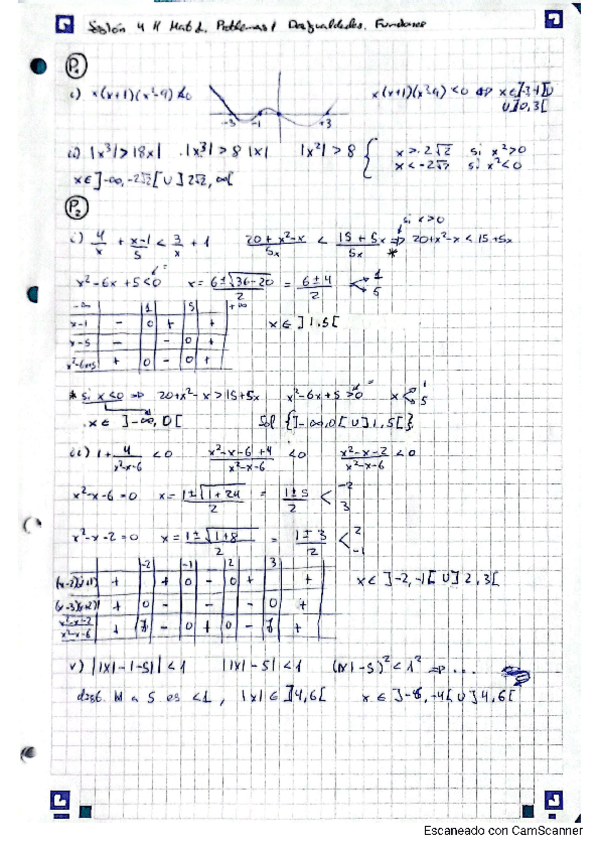 Sesión 4 Mat 1. Problemas 1 Desigualdades. Funciones
P1
i) x(x+1)(x²-9)<0
-3 -1 +3
x(x+1)(x²-9)<0 ⇒ x∈]-3,-1[U
U]0,3[
|x³|>18x| |x³|>8|x| |x²|>8 { x>2√2 si x²>0
x<-2√2 si x²<0
x∈]-∞,-2√2[U]2√2,∞[
P2
i) 4/x + x-1/5 < 3/x + 1 20+x²-x/5x < 15+5x/5x ⇒ 20+x²-x<15+5x
si x>0
*
x²-6x+5<0 x = 6±√36-20/2 = 6±4/2 < 1
5
-∞ 1 5 +∞
x-1 - 0 + +
x-5 - - 0 +
x²-6x+5 + 0 - 0 +
x∈]1,5[
* si x<0 ⇒ 20+x²-x>15+5x x²-6x+5>0 x< 1
5
x∈]-∞,0[ Sol {]-∞,0[U]1,5[}
1+ 4/x²-x-6 <0 x²-x-6+4/x²-x-6 <0 x²-x-2/x²-x-6 <0
x²-x-6=0 x = 1±√1+24/2 = 1±5/2 < -2
3
x²-x-2=0 x = 1±√1+8/2 = 1±3/2 < 2
-1
-2 -1 2 3
(x-2)(x+1) + + 0 - 0 + +
(x-3)(x+2) + 0 - - - 0 +
x²-x-2/x²-x-6 + - 0 + 0 - +
x∈]-2,-1[U]2,3[
v) ||x|-|-5||<1 ||x|-5|<1 (|x|-5)²<1² ⇒ ...
a 5 es <1, |x|∈]4,6[ x∈]-6,-4[U]4,6[
Escaneado con CamScanner